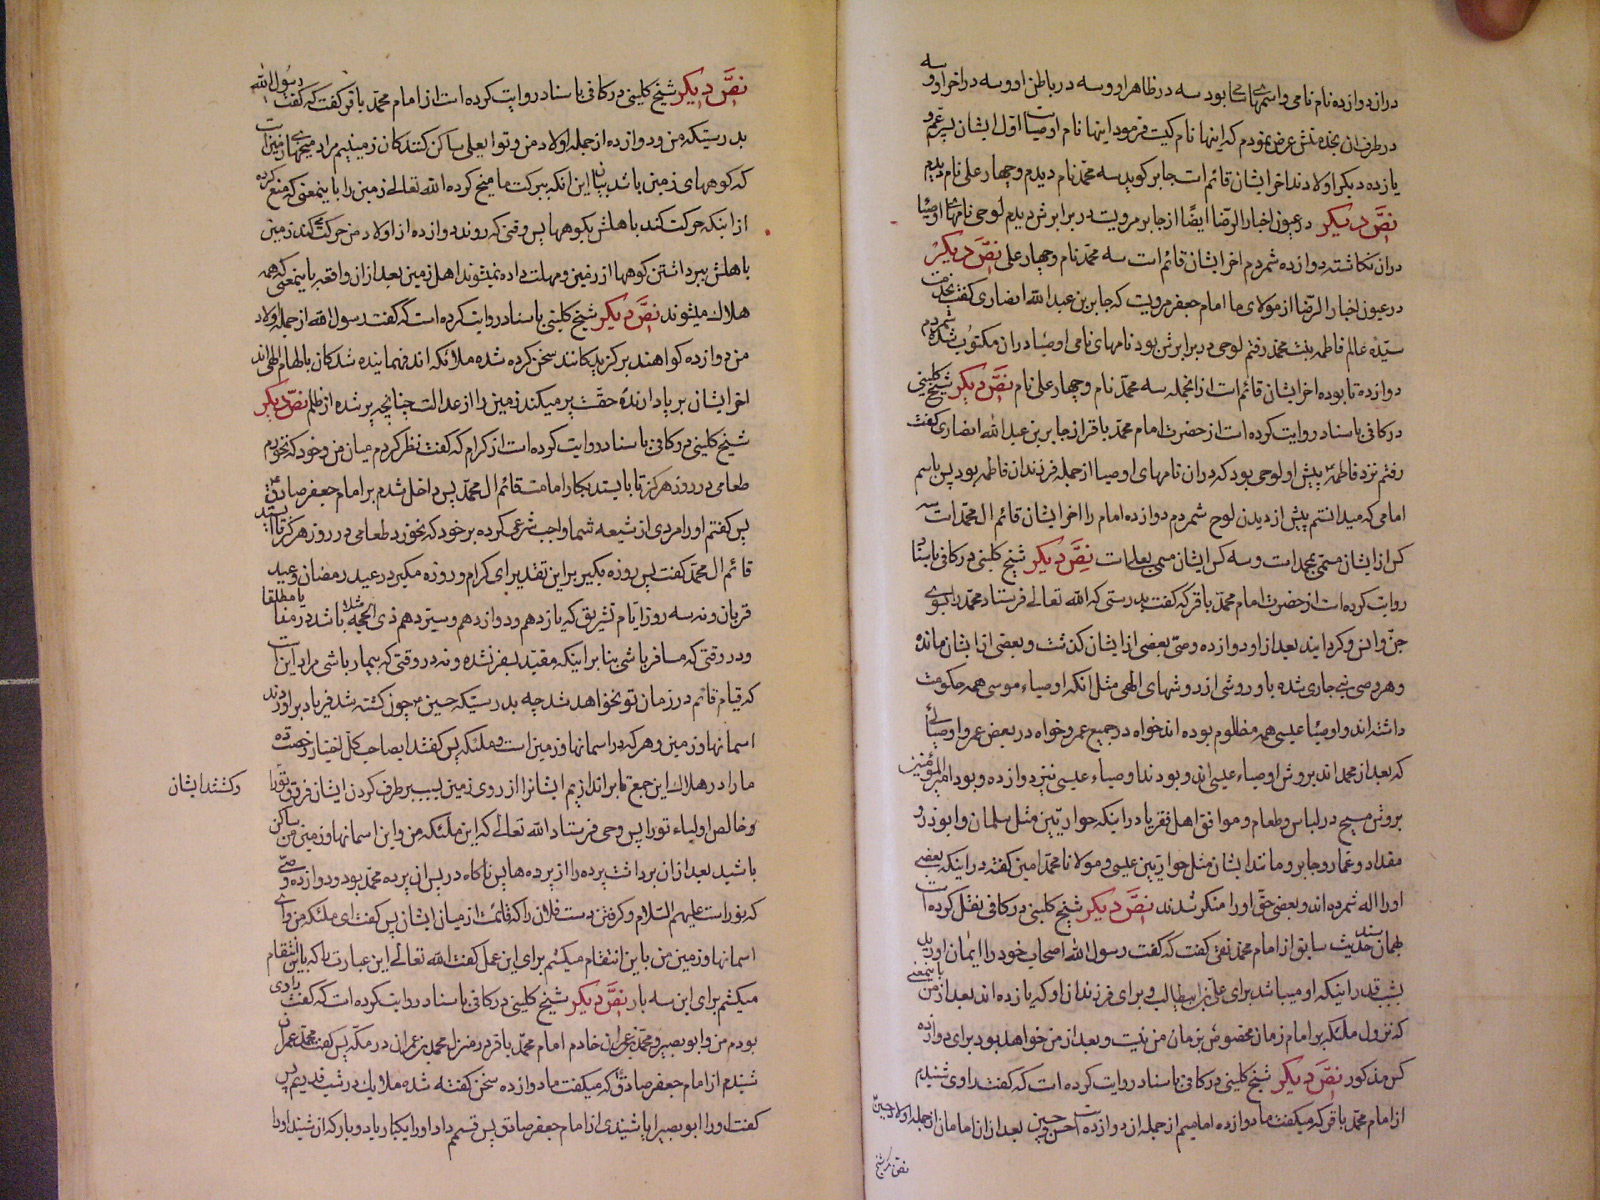 در آن دوازده نام نامی و اسمهای سامی بود سه در ظاهر او و سه در باطن او و سه در اخر او و سه
در طرف ان عرض نمودم که اینها نام کیست فرمود اینها نام اوصیاست اول ایشان پسر عم و
یازده دیگر اولادند اخر ایشان قائم است جابر کوید سه محمد نام دیدم و چهار علی نام دیدم
نص دیکر در عیون اخبار الرضا ایضا از جابر مرویست در برابرش دیدم لوحی نامهای اوصیا
در ان نکاشته دوازده شمردم اخر ایشان قائم است سه محمد نام و چهار علی نص دیکر
در عیون اخبار الرضا از مولای ما امام جعفر مرویست که جابر بن عبد الله انصاری کفت بخدمت
سیده عالم فاطمه بنت محمد رفتم لوحی در برابرش بود نامهای نامی اوصیا در ان مکتوب شده شمردم
دوازده تا بوده اخر ایشان قائم است از انجمله سه محمد نام و چهار علی نام نص دیکر شیخ کلینی
در کافی باسناد روایت کرده است از حضرت امام محمد باقر از جابر بن عبد الله انصاری کفت
رفتم نزد فاطمه پیش او لوحی بود که در ان نامهای اوصیا از جمله فرزندان فاطمه بود پس باسم
امامی که میدانستم پیش از دیدن لوح شمردم دوازده امام را اخر ایشان قائم ال محمد است سه
کس از ایشان مسمی بمحمد است و سه کس ایشان مسمی بعلی است نص دیکر شیخ کلینی در کافی باسناد
روایت کرده است از حضرت امام محمد باقر که کفت بدرستی که الله تعالی فرستاد محمد را بسوی
جن و انس و کردانید بعد از او دوازده وصی بعضی از ایشان کذشت و بعضی از ایشان مانده
و هر وصی جاری شده باو روشی از روشهای الهی مثل انکه اوصیاء موسی همه حکومت
داشته اند و اوصیا عیسی همه مظلوم بوده اند خواه در جمیع عمر و خواه در بعض عمر و اوصیائی
که بعد از محمد اند بروش اوصیاء عیسی اند و بودند اوصیاء عیسی نیز دوازده و بود امیر المؤمنین
بروش مسیح در لباس و طعام و موافق اهل فقر یا در اینکه حواریین مثل سلمان و ابوذر و
مقداد و عمار و جابر و مانند ایشان مثل حواریین عیسی و مولانا محمد امین کفته در اینکه بعضی
او را اله شمرده اند و بعضی حق او را منکر شدند نص دیکر شیخ کلینی در کافی نقل کرده است
بهمان سند حدیث سابق از امام محمد تقی کفت که کفت رسول الله اصحاب خود را ایمان اورید
بشب قدر اینکه او میباشد برای علی بن ابیطالب و برای فرزندان او که یازده اند بعد از من باینمعنی
که نزول ملئکه بر امام زمان مخصوص بزمان من نیست و بعد از من خواهد بود برای دوازده
کس مذکور نص دیکر شیخ کلینی در کافی باسناد روایت کرده است که کفت راوی شنیدم
از امام محمد باقر که میکفت ما دوازده امامیم از جمله ان دوازده است حسن و حسین بعد از ان امامان از جمله اولاد حسین
نص دیکر شیخ
نص دیکر شیخ کلینی در کافی باسناد روایت کرده است از امام محمد باقر کفت که کفت رسول الله
بدرستیکه من و دوازده از جمله اولاد من و تو ایعلی ساکن کنندکان زمینیم مراد میخهای زمین است
که کوههای زمین باشد بیان این انکه ببرکت ما منع کرده الله تعالی زمین را باینمعنی که منع کرده
از اینکه حرکت کند باهلش بکوهها پس وقتی که روند دوازده از اولاد من حرکت کند زمین
باهلش ببرداشتن کوهها از زمین و مهلت داده نمیشوند اهل زمین بعد از ان واقعه باینمعنی که همه
هلاک میشوند نص دیکر شیخ کلینی باسناد روایت کرده است که کفت رسول الله از جمله اولاد
من دوازده کواهند برکزیدکانند سخن کرده شده ملائکه اند فهمانیده شدکان بالهام الهی اند
اخر ایشان برپا دارندهٔ حقست پر میکند زمین را از عدالت چنانچه پر شده از ظلم نص دیکر
شیخ کلینی در کافی باسناد روایت کرده است از کرام که کفت نظر کردم میان من و خود که نخوریم
طعامی در روز هرکز تا بایستد بکار امامت قائم ال محمد پس داخل شدم بر امام جعفر صادق
پس کفتم او را مردی از شیعه شما واجب شرعی کرده بر خود که نخورد طعامی در روز هرکز تا ایستد
قائم ال محمد کفت پس روزه بکیر بر این تقدیر ای کرام و روزه مکیر در عید رمضان و عید
قربان و نه سه روز ایام تشریق که یازدهم و دوازدهم و سیزدهم ذی الحجه باشد در منا مثلا یا مطلقا
و در وقتی که مسافر باشی بنا بر اینکه مقید بسفر نشده و نه در وقتی که بیمار باشی مراد این است
که قیام قائم در زمان تو نخواهد شد چه بدرستیکه حسین چون کشته شد فریاد بر اوردند
اسمانها و زمین و هر که در اسمانها و زمین است و ملئکه پس کفتند ایصاحب کل اختیار رخصت ده
ما را در هلاک این جمع تا براندازیم ایشانرا از روی زمین بسبب برطرف کردن ایشان فرق تو را
و کشتند ایشان
و خالص اولیاء تو را پس وحی فرستاد الله تعالی که ای ملئکه من و این اسمانها و زمین من ساکن
باشید بعد از ان برداشت پرده را از پرده ها پس ناکاه در پس ان پرده محمد بود و دوازده وصی
که بود است علیهم السلام و کرفتن دست فلان را که قائمست از میان ایشان پس کفت ای ملئکه من و ای
اسمانها و زمین من باین انتقام میکشم برای این عمل کفت الله تعالی این عبارت را که باین انتقام
میکشم برای این سه بار نص دیکر شیخ کلینی در کافی باسناد روایت کرده است که کفت راوی
بودم من و ابو بصیر و محمد بن عمران خادم امام محمد باقر در منزل محمد بن عمران در مکه پس کفت محمد عمران
شنیدم از امام جعفر صادق که میکفت ما دوازده سخن کفته شده ملایک در شب قدریم پس
کفت او را ابو بصیر ایا شنیدی از امام جعفر صادق پس قسم داد او را یکبار یا دو بار که از شنید او را